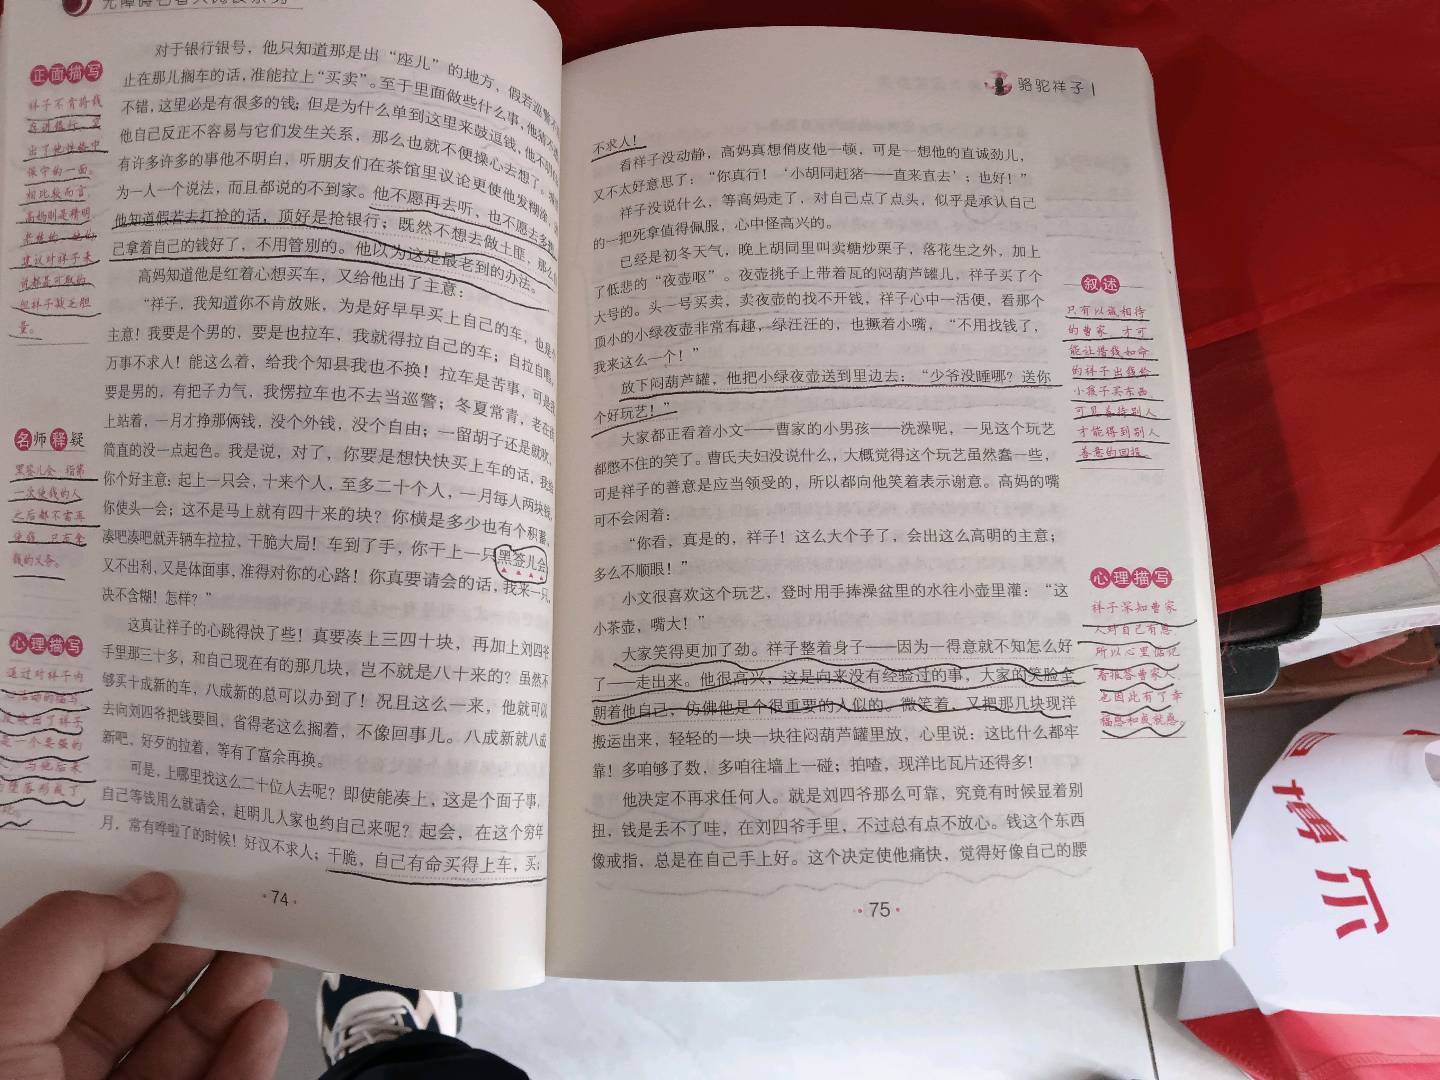 正面描写
祥子不肯将钱
存进银行，显
出了他性格中
保守的一面。
相比较而言，
高妈则是精明
建议对祥子来
说都是可取的，
但祥子缺乏胆
量。
名师释疑
黑签儿会 指第
一次使钱的人
之后都不需再
使钱，只有拿
钱的义务。
心理描写
通过对祥子内
对于银行银号，他只知道那是出“座儿”的地方，假若巡警不
止在那儿搁车的话，准能拉上“买卖”。至于里面做些什么事，他猜不透
不错，这里必是有很多的钱；但是为什么单到这里来鼓逗钱，他不明白
他自己反正不容易与它们发生关系，那么也就不便操心去想了。
有许多许多的事他不明白，听朋友们在茶馆里议论更使他发糊涂，
为一人一个说法，而且都说的不到家。他不愿再去听，也不愿去多想，
他知道假若去打抢的话，顶好是抢银行；既然不想去做土匪，那么
己拿着自己的钱好了，不用管别的。他以为这是最老到的办法。
高妈知道他是红着心想买车，又给他出了主意：
“祥子，我知道你不肯放账，为是好早早买上自己的车，也是个
主意！我要是个男的，要是也拉车，我就得拉自己的车；自拉自唱，
万事不求人！能这么着，给我个知县我也不换！拉车是苦事，可是我
要是男的，有把子力气，我愣拉车也不去当巡警；冬夏常青，老在街
上站着，一月才挣那俩钱，没个外钱，没个自由；一留胡子还是就吹，
简直的没一点起色。我是说，对了，你要是想快快买上车的话，我给
你个好主意：起上一只会，十来个人，至多二十个人，一月每人两块钱，
你使头一会；这不是马上就有四十来的块？你横是多少也有个积蓄，
凑吧凑吧就弄辆车拉拉，干脆大局！车到了手，你干上一只黑签儿会
又不出利，又是体面事，准得对你的心路！你真要请会的话，我来一只，
决不含糊！怎样？”
这真让祥子的心跳得快了些！真要凑上三四十块，再加上刘四爷
手里那三十多，和自己现在有的那几块，岂不就是八十来的？虽然不
够买十成新的车，八成新的总可以办到了！况且这么一来，他就可以
去向刘四爷把钱要回，省得老这么搁着，不像回事儿。八成新就八成
新吧，好歹的拉着，等有了富余再换。
可是，上哪里找这么二十位人去呢？即使能凑上，这是个面子事，
自己等钱用么就请会，赶明儿人家也约自己来呢？起会，在这个穷年
月，常有哗啦了的时候！好汉不求人；干脆，自己有命买得上车，买；
·74·
骆驼祥子
不求人！
看祥子没动静，高妈真想俏皮他一顿，可是一想他的直诚劲儿，
又不太好意思了：“你真行！‘小胡同赶猪——直来直去’；也好！”
祥子没说什么，等高妈走了，对自己点了点头，似乎是承认自己
的一把死拿值得佩服，心中怪高兴的。
已经是初冬天气，晚上胡同里叫卖糖炒栗子，落花生之外，加上
了低悲的“夜壶呕”。夜壶挑子上带着瓦的闷葫芦罐儿，祥子买了个
大号的。头一号买卖，卖夜壶的找不开钱，祥子心中一活便，看那个
顶小的小绿夜壶非常有趣，绿汪汪的，也撅着小嘴，“不用找钱了，
我来这么一个！”
放下闷葫芦罐，他把小绿夜壶送到里边去：“少爷没睡哪？送你
个好玩艺！”
大家都正看着小文——曹家的小男孩——洗澡呢，一见这个玩艺
都憋不住的笑了。曹氏夫妇没说什么，大概觉得这个玩艺虽然蠢一些，
可是祥子的善意是应当领受的，所以都向他笑着表示谢意。高妈的嘴
可不会闲着：
“你看，真是的，祥子！这么大个子了，会出这么高明的主意；
多么不顺眼！”
小文很喜欢这个玩艺，登时用手捧澡盆里的水往小壶里灌：“这
小茶壶，嘴大！”
大家笑得更加了劲。祥子整着身子——因为一得意就不知怎么好
了——走出来。他很高兴，这是向来没有经验过的事，大家的笑脸全
朝着他自己，仿佛他是个很重要的人似的。微笑着，又把那几块现洋
搬运出来，轻轻的一块一块往闷葫芦罐里放，心里说：这比什么都牢
靠！多咱够了数，多咱往墙上一碰；拍喳，现洋比瓦片还得多！
他决定不再求任何人。就是刘四爷那么可靠，究竟有时候显着别
扭，钱是丢不了哇，在刘四爷手里，不过总有点不放心。钱这个东西
像戒指，总是在自己手上好。这个决定使他痛快，觉得好像自己的腰
·75·
叙述
只有以诚相待
的曹家，才可
能让惜钱如命
的祥子出钱给
小孩子买东西。
可见善待别人
才能得到别人
善意的回报。
心理描写
祥子深知曹家
人对自己有恩，
所以心里惦记
着报答曹家人，
也因此有了幸
福感和成就感。
博尔